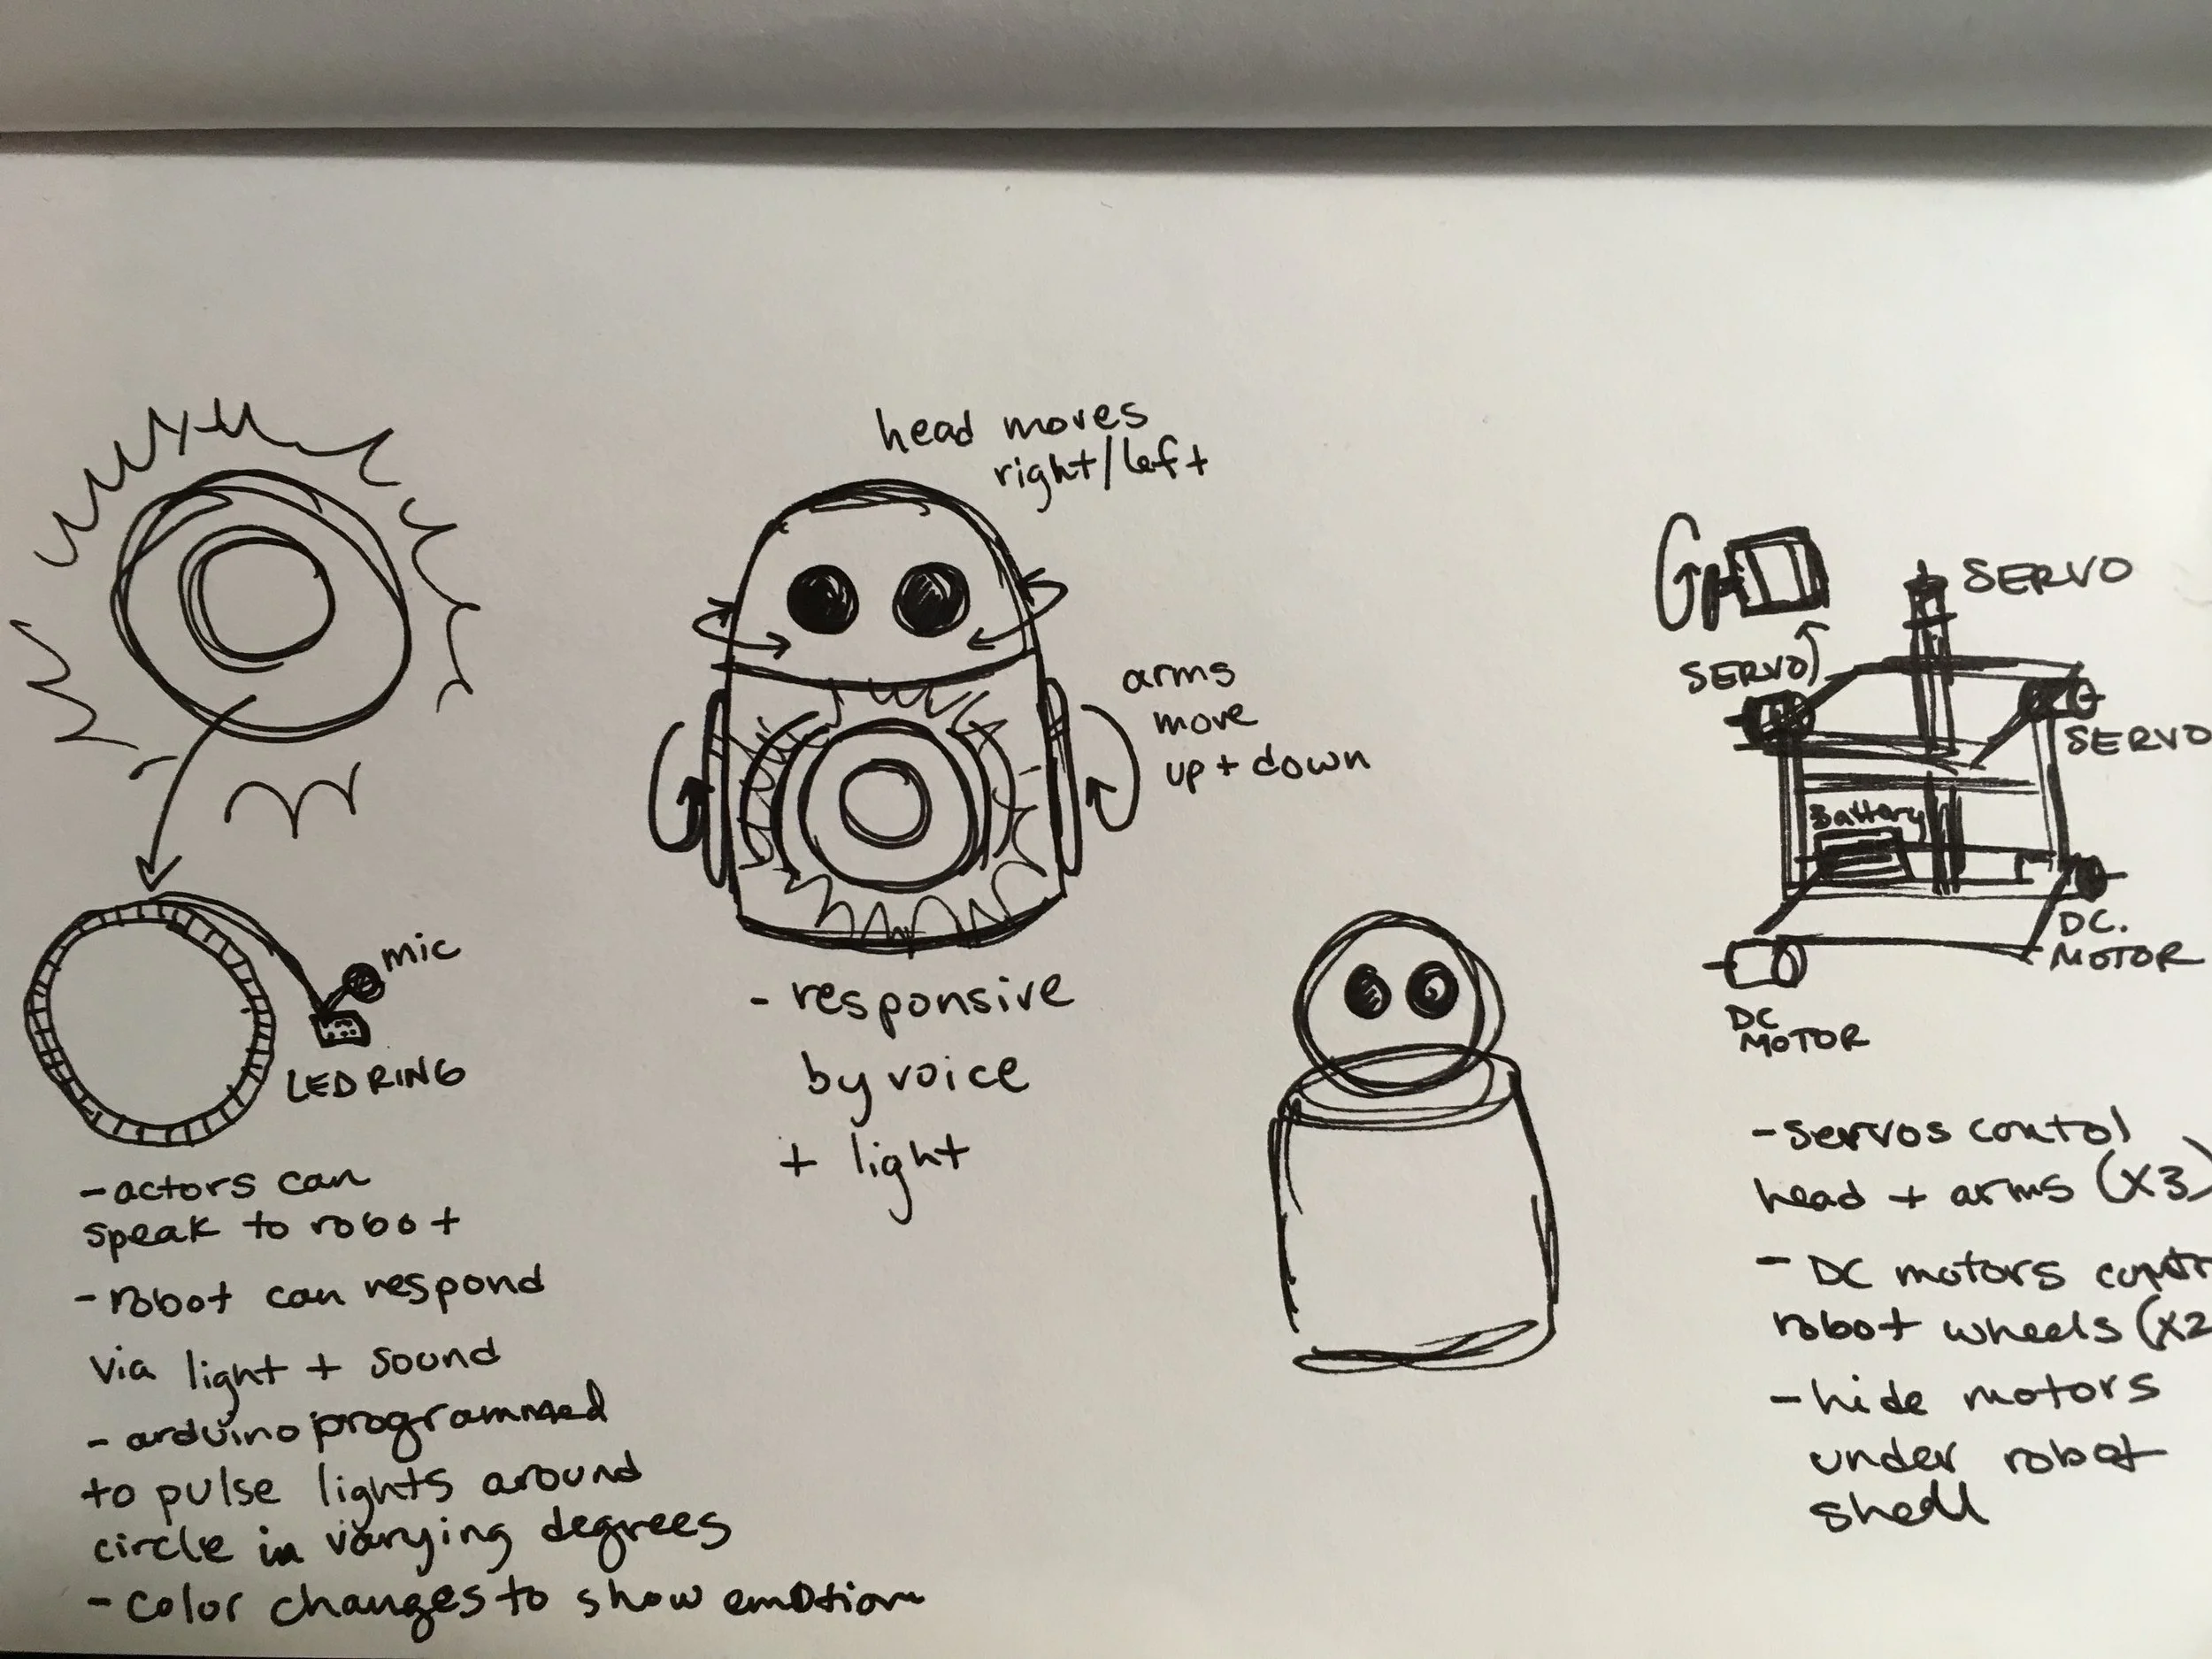 head moves
right/left
arms
move
up + down
- responsive
by voice
+ light
mic
LED RING
- actors can
speak to robot
- robot can respond
via light + sound
- arduino programmed
to pulse lights around
circle in varying degrees
- color changes to show emotion
SERVO
SERVO
SERVO
Battery
DC.
MOTOR
DC
MOTOR
- servos contol
head + arms (x3)
- DC motors contr
robot wheels (x2
- hide motors
under robot
shell